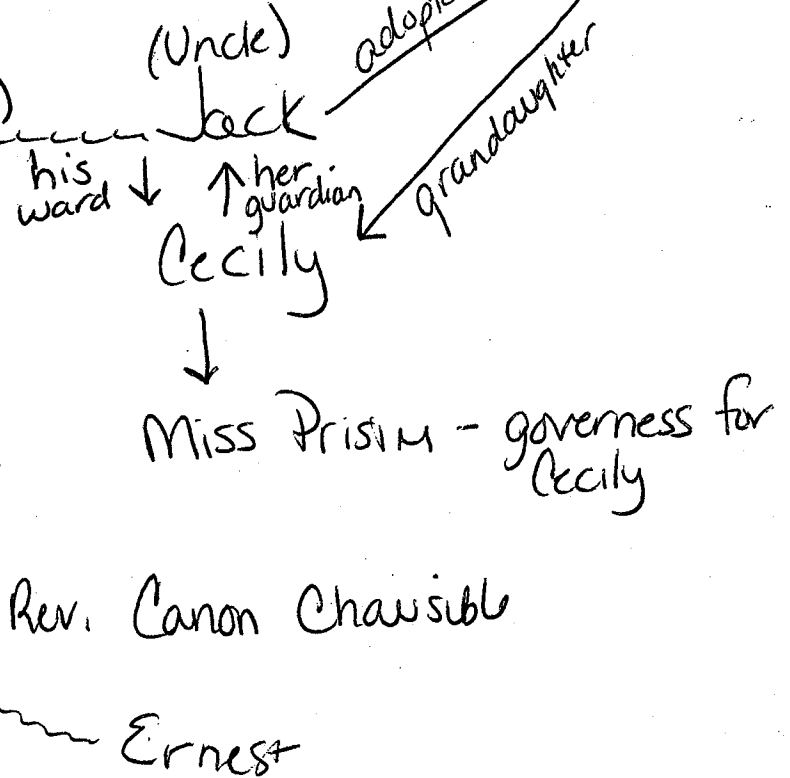 (Uncle)
adopt
Jack
grandaughter
his
ward
her
guardian
Cecily
Miss Prism - governess for
Cecily
Rev. Canon Chausible
Ernest